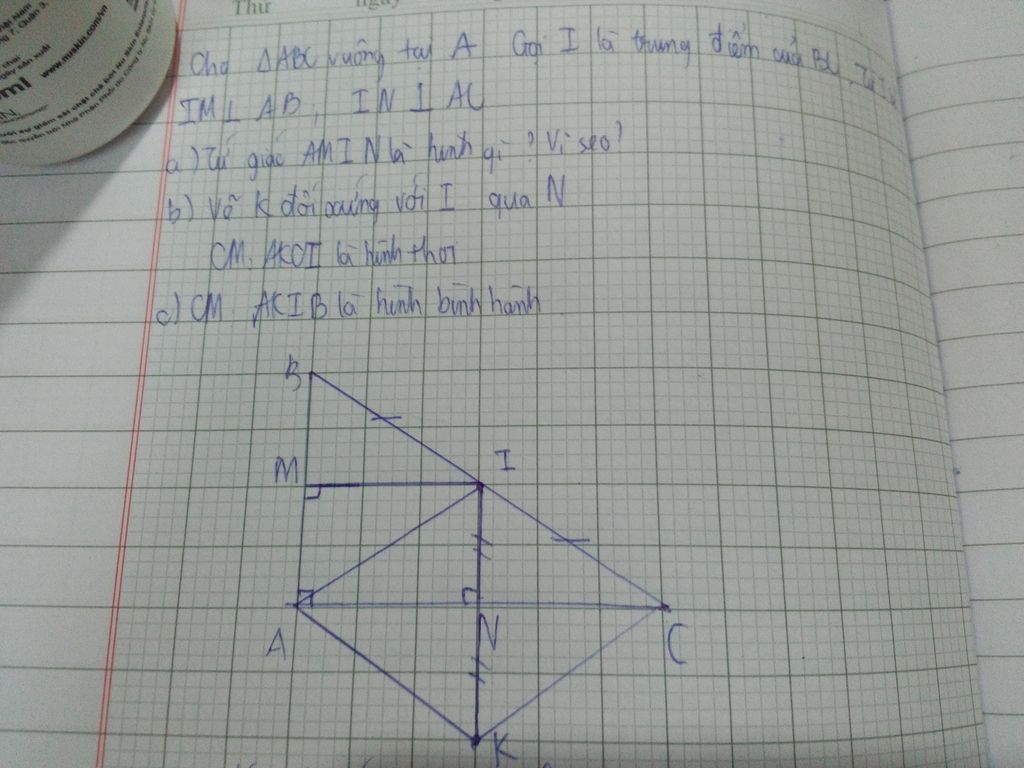 Thứ ngày
www.muskin.com/vn
ml
Cho ΔABC vuông tại A Gọi I là trung điểm của BC. Từ I
IM⊥ AB, IN⊥ AC
a) Tứ giác AMIN là hình gì? Vì sao?
b) Vẽ K đối xứng với I qua N
CM: AKCI là hình thoi
c) CM AKIB là hình bình hành
B
M I
A N C
K